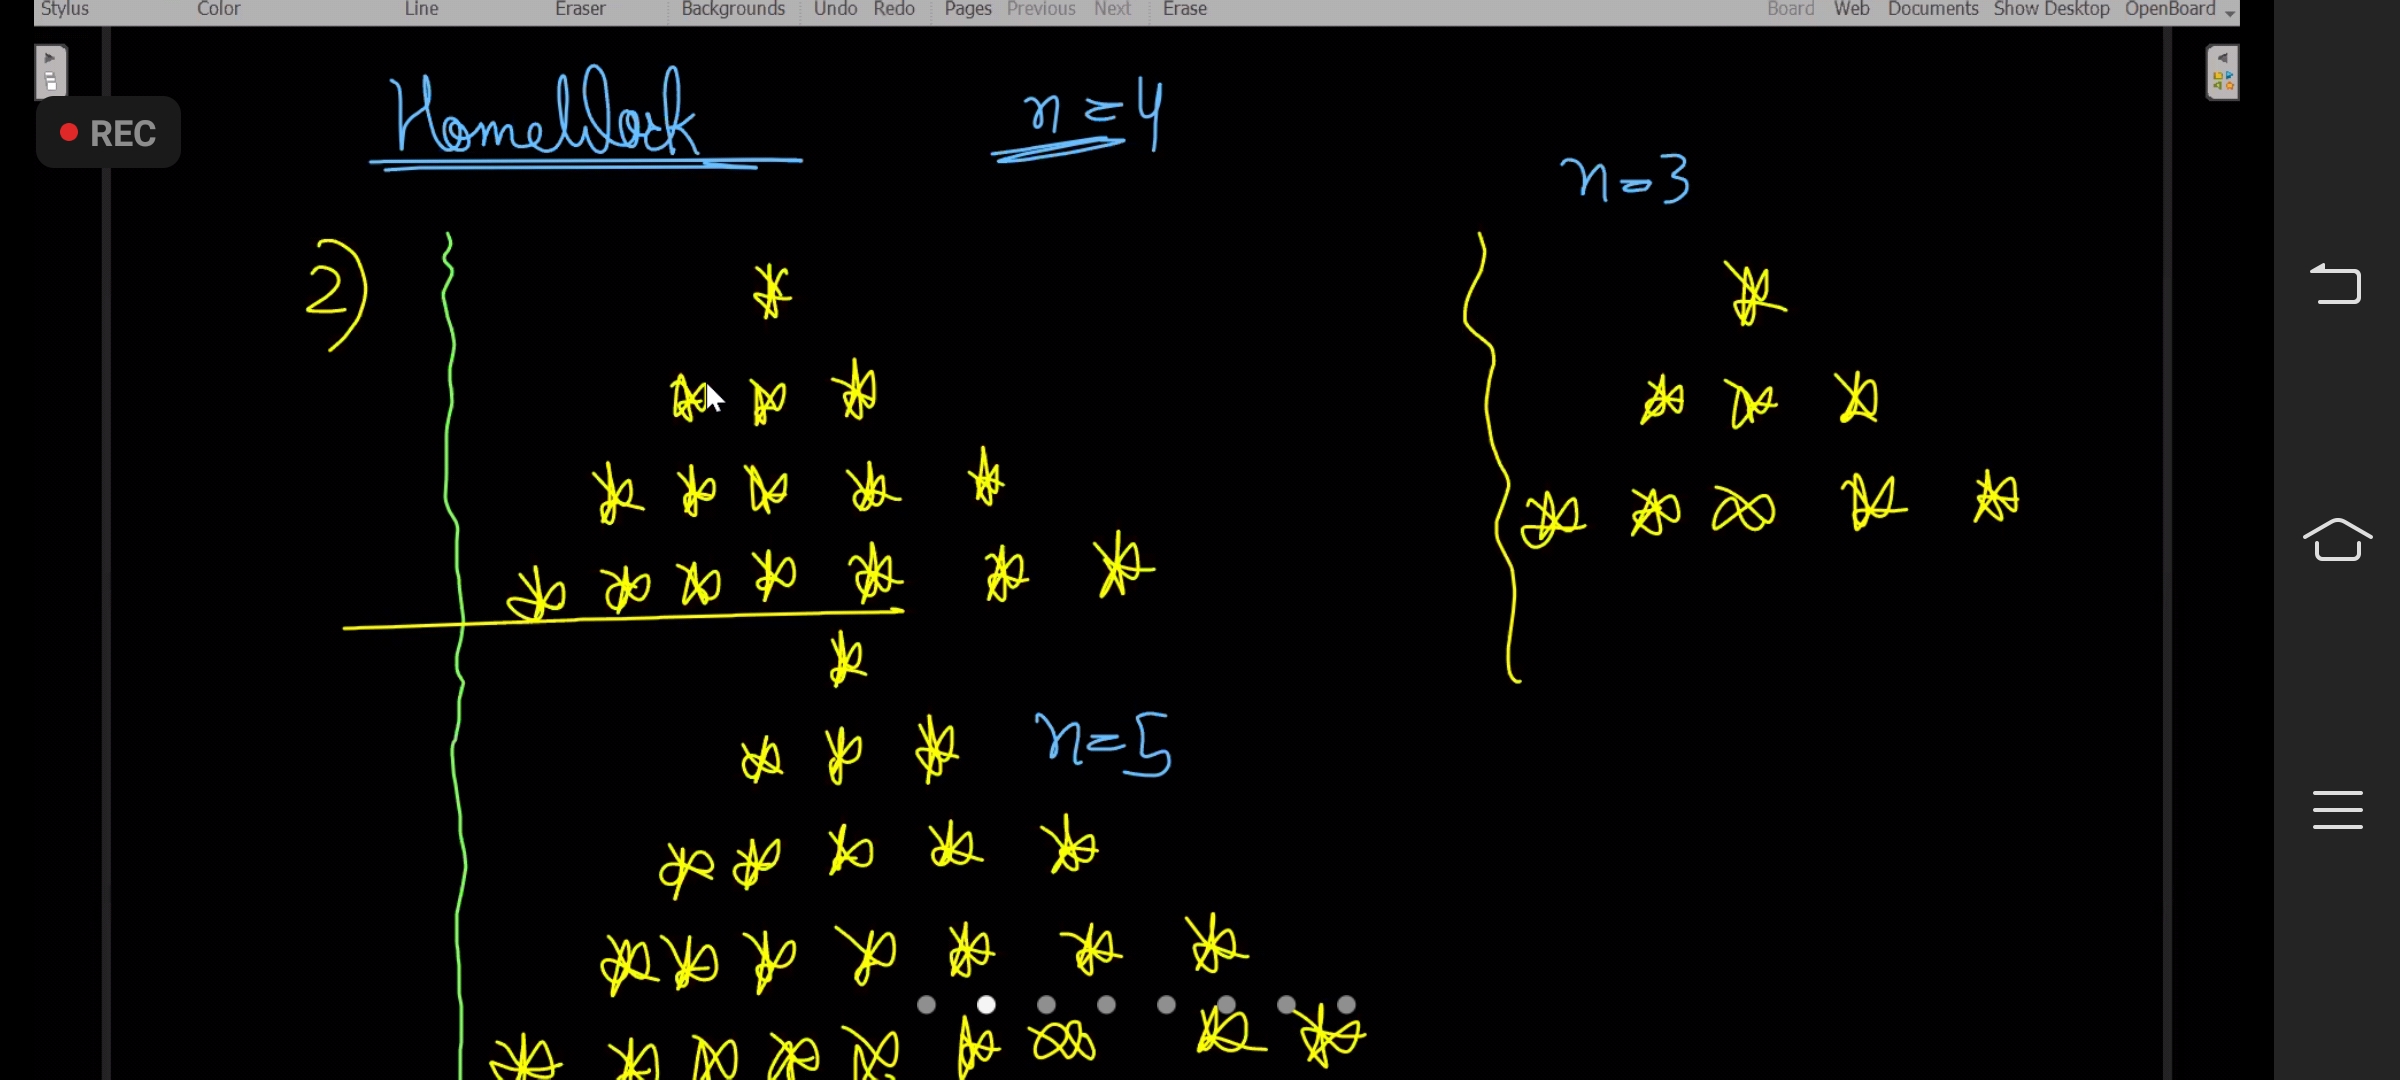 Stylus Color Line Eraser Backgrounds Undo Redo Pages Previous Next Erase Board Web Documents Show Desktop OpenBoard
REC
HomeWork n = 4
n = 3
2)
*
* * *
* * * * *
* * * * * * *
*
* * *
* * * * *
*
* * * n = 5
* * * * *
* * * * * * *
* * * * * * * * *